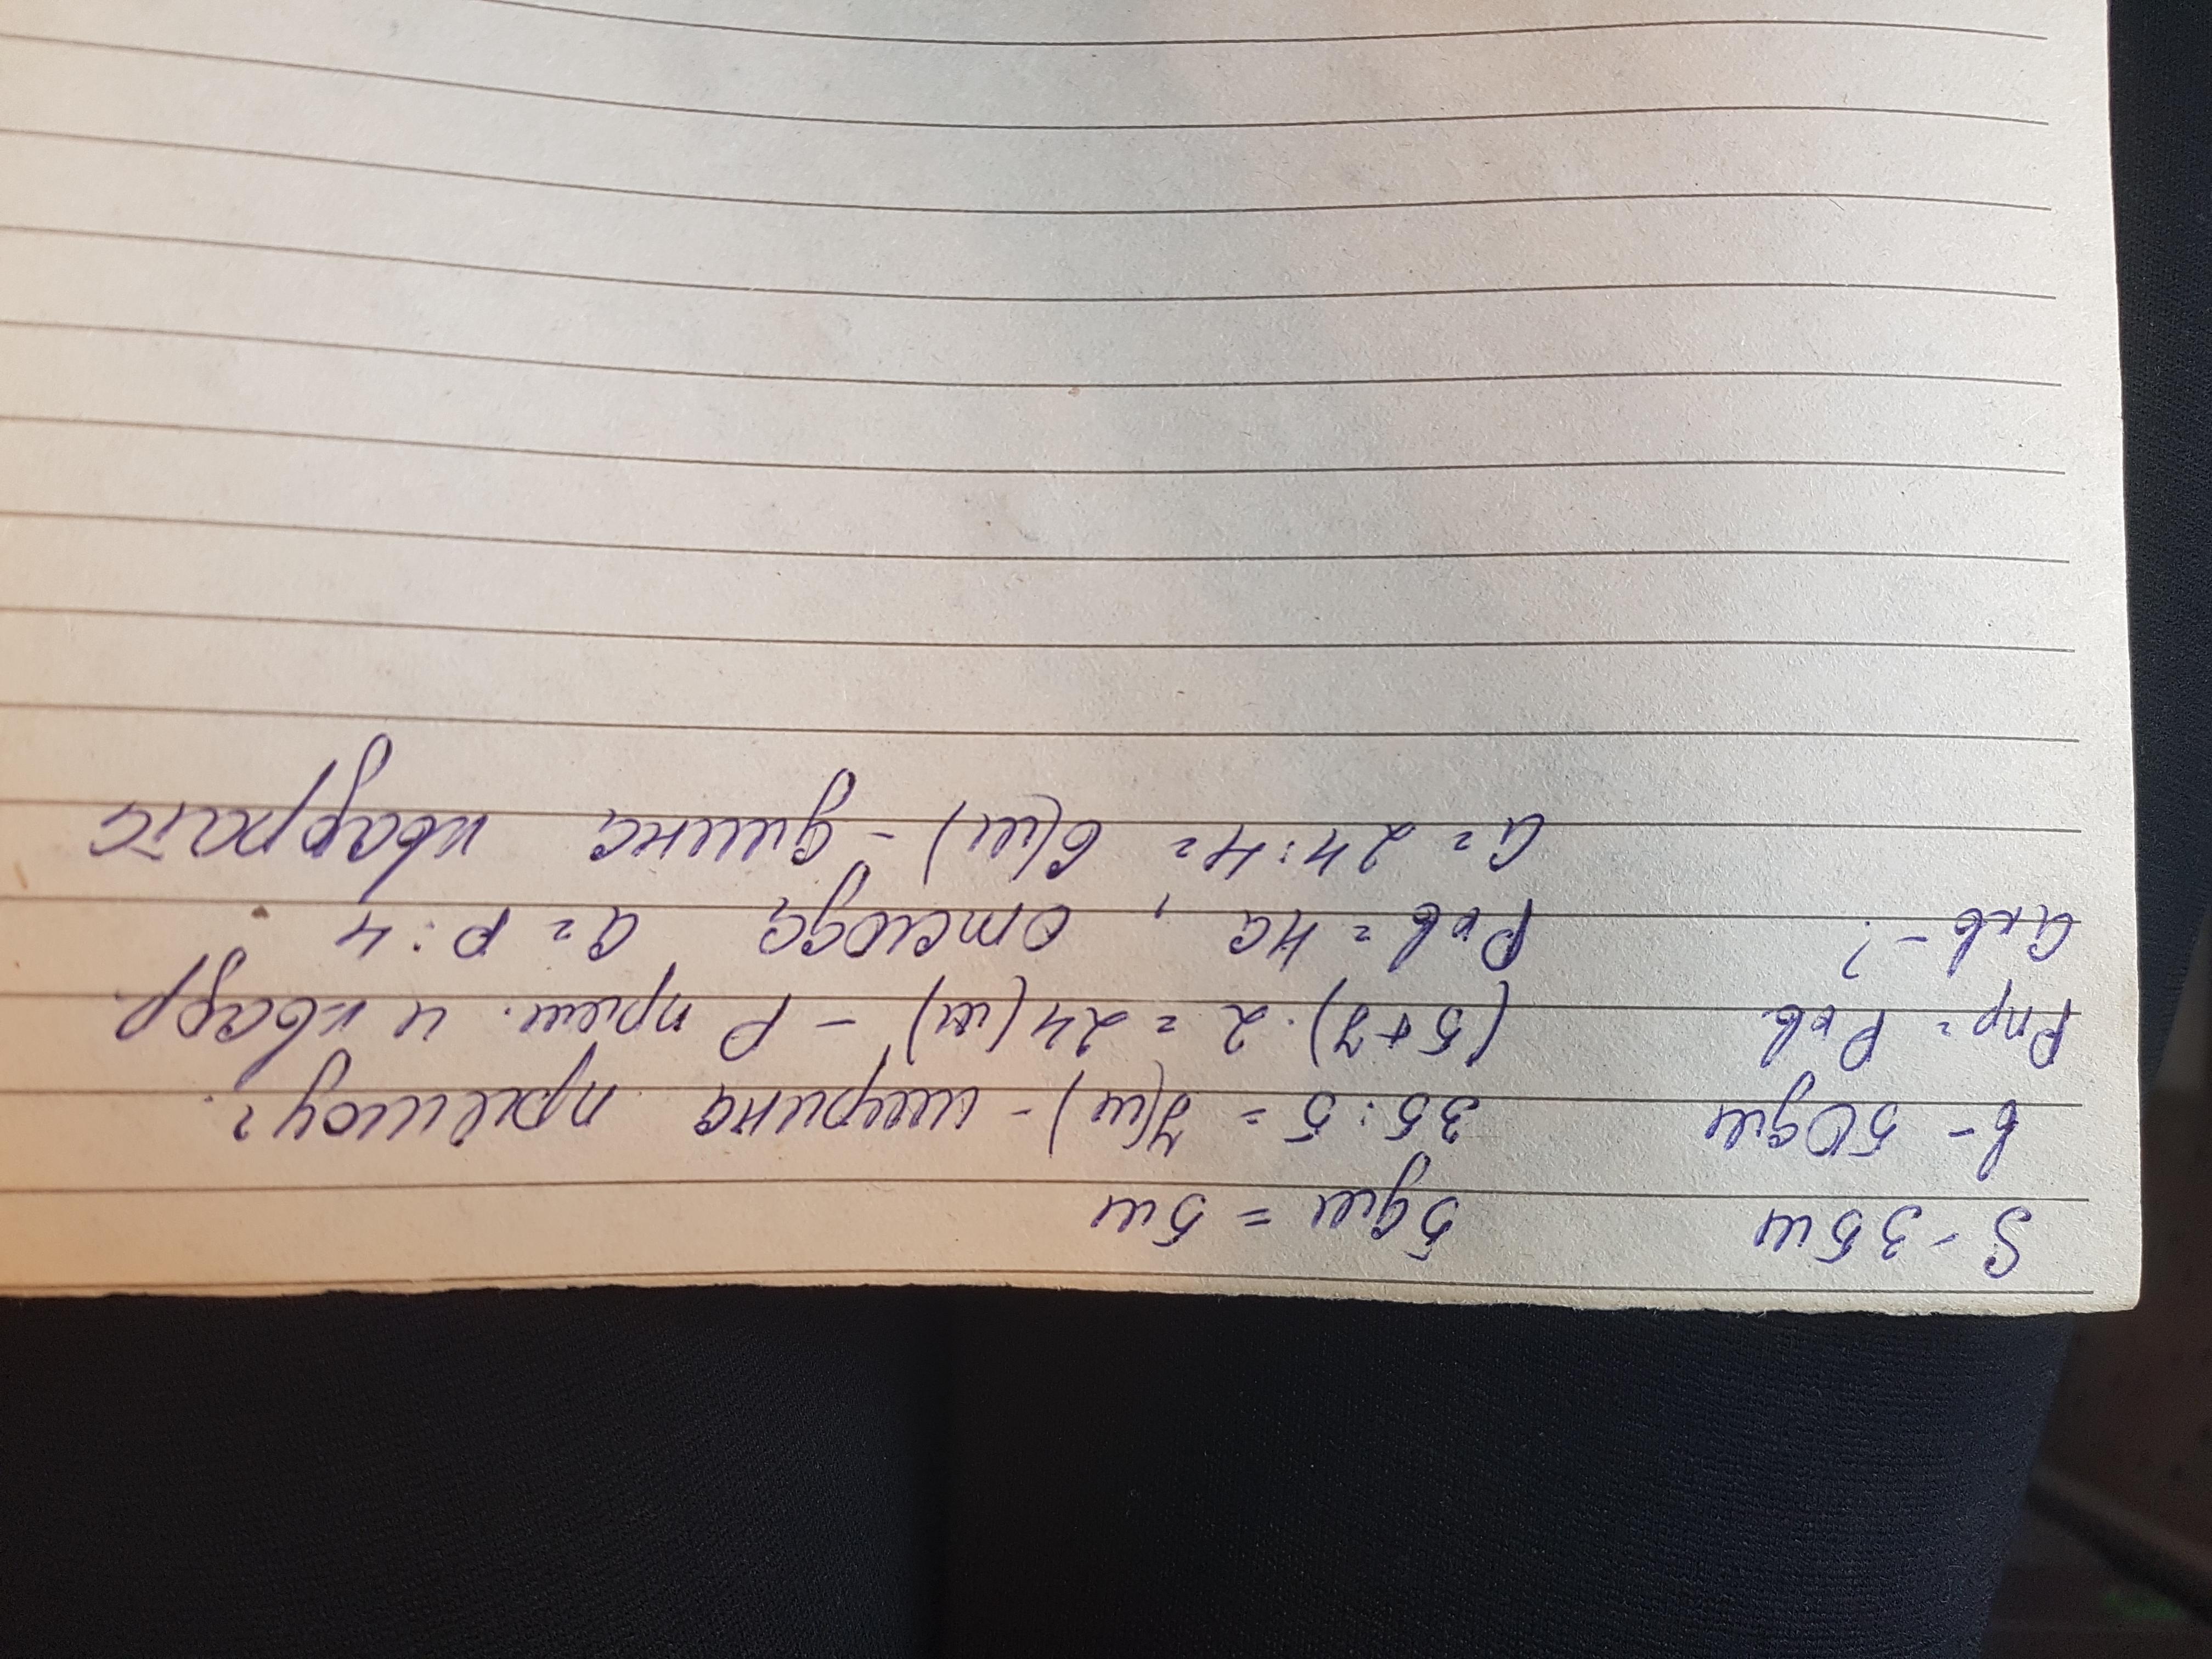 S - 35м 5дм = 5м
b - 50дм 35:5 = 7(м) - ширина прямоуг.
Pпр = Pкв (5+7)·2 = 24(м) - P прям. и квадр.
aкв - ? Pкв = 4a, отсюда a = P:4
a = 24:4 = 6(м) - длина квадрата